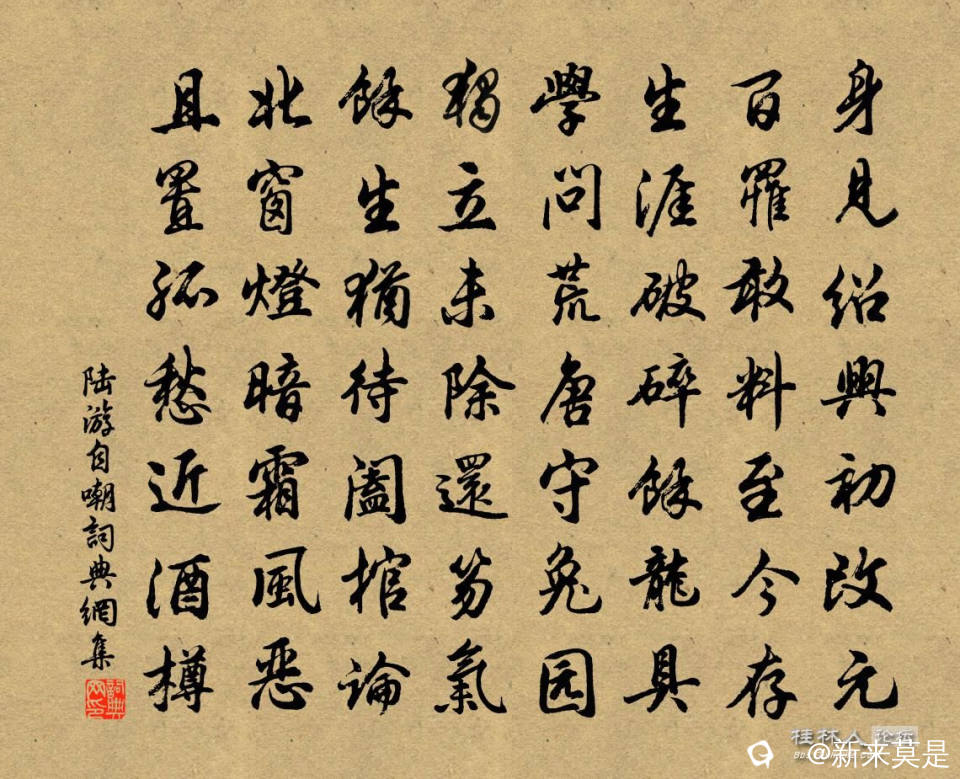 身見紹興初改元
百罹敢料至今存
生涯破碎餘龍具
學問荒唐守兔园
獨立未除還笏氣
餘生猶待闔棺論
北窗燈暗霜風恶
且置孤愁近酒樽
陆游自嘲詞典網集
桂林人论坛
@新来莫是